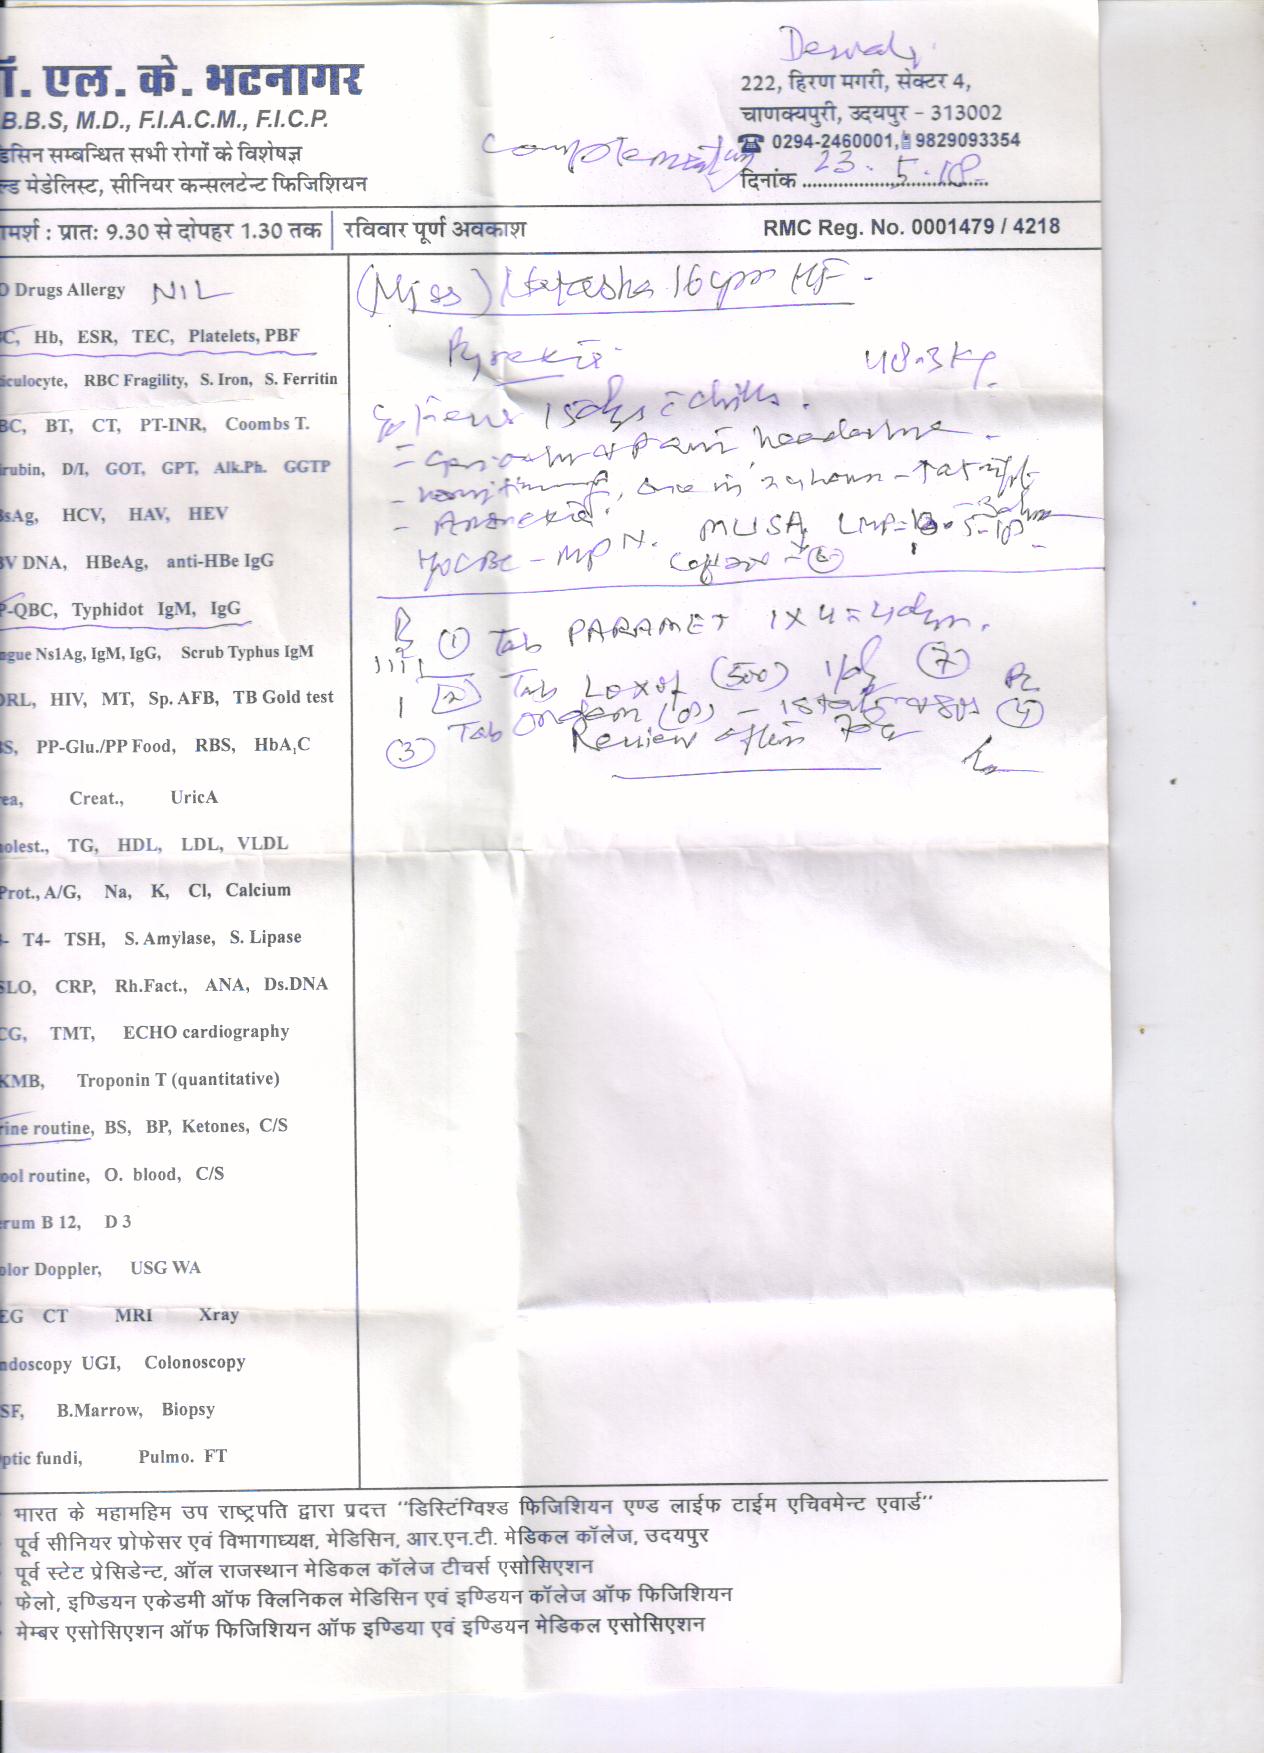 ॉ. एल. के. भटनागर
B.B.S, M.D., F.I.A.C.M., F.I.C.P.
डिसिन सम्बन्धित सभी रोगों के विशेषज्ञ
ल्ड मेडेलिस्ट, सीनियर कन्सलटेन्ट फिजिशियन
222, हिरण मगरी, सेक्टर 4,
चाणक्यपुरी, उदयपुर - 313002
☎ 0294-2460001, 9829093354
दिनांक 23.5.18
ामर्श : प्रातः 9.30 से दोपहर 1.30 तक रविवार पूर्ण अवकाश
RMC Reg. No. 0001479 / 4218
O Drugs Allergy NIL
C, Hb, ESR, TEC, Platelets, PBF
iculocyte, RBC Fragility, S. Iron, S. Ferritin
BC, BT, CT, PT-INR, Coombs T.
irubin, D/I, GOT, GPT, Alk.Ph. GGTP
sAg, HCV, HAV, HEV
BV DNA, HBeAg, anti-HBe IgG
P-QBC, Typhidot IgM, IgG
ngue Ns1Ag, IgM, IgG, Scrub Typhus IgM
DRL, HIV, MT, Sp. AFB, TB Gold test
BS, PP-Glu./PP Food, RBS, HbA₁C
rea, Creat., UricA
holest., TG, HDL, LDL, VLDL
Prot., A/G, Na, K, Cl, Calcium
- T4- TSH, S. Amylase, S. Lipase
SLO, CRP, Rh.Fact., ANA, Ds.DNA
CG, TMT, ECHO cardiography
KMB, Troponin T (quantitative)
rine routine, BS, BP, Ketones, C/S
ool routine, O. blood, C/S
erum B 12, D 3
olor Doppler, USG WA
EG CT MRI Xray
ndoscopy UGI, Colonoscopy
SF, B.Marrow, Biopsy
ptic fundi, Pulmo. FT
(Miss)
Pyrexia 48.3 kg
headache
Vomiting, one in 24 hours
- Anorexia.
CBC - MP N.
① Tab PARAMET 1 x 4 = 4 days.
② Tab Loxof (500) ⑦
③ Tab
Review after
भारत के महामहिम उप राष्ट्रपति द्वारा प्रदत्त "डिस्टिंग्विश्ड फिजिशियन एण्ड लाईफ टाईम एचिवमेन्ट एवार्ड"
पूर्व सीनियर प्रोफेसर एवं विभागाध्यक्ष, मेडिसिन, आर.एन.टी. मेडिकल कॉलेज, उदयपुर
पूर्व स्टेट प्रेसिडेन्ट, ऑल राजस्थान मेडिकल कॉलेज टीचर्स एसोसिएशन
फेलो, इण्डियन एकेडमी ऑफ क्लिनिकल मेडिसिन एवं इण्डियन कॉलेज ऑफ फिजिशियन
मेम्बर एसोसिएशन ऑफ फिजिशियन ऑफ इण्डिया एवं इण्डियन मेडिकल एसोसिएशन